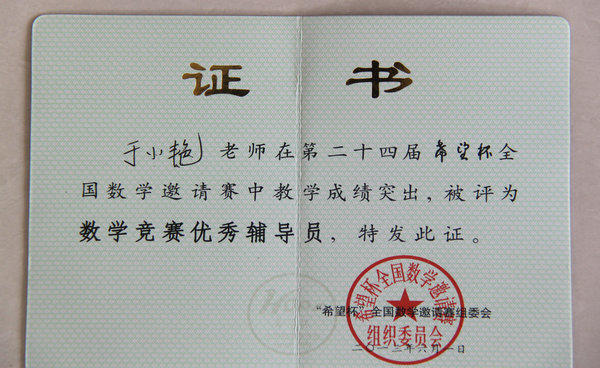 证 书
于小艳老师在第二十四届希望杯全
国数学邀请赛中教学成绩突出，被评为
数学竞赛优秀辅导员，特发此证。
希望杯全国数学邀请赛
“希望杯”全国数学邀请赛组委会
组织委员会
二〇一三年六月一日